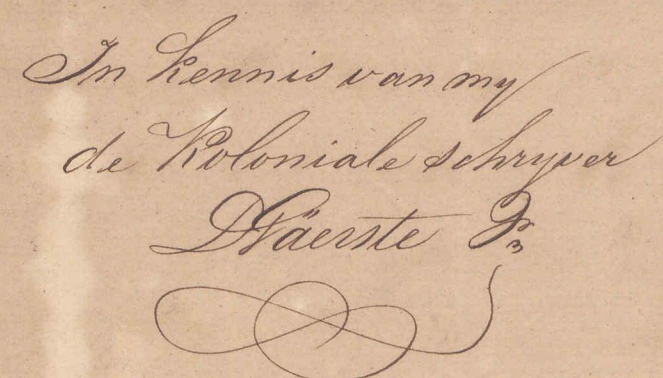 In kennis van my
de Koloniale schryver
DVäerste Jr